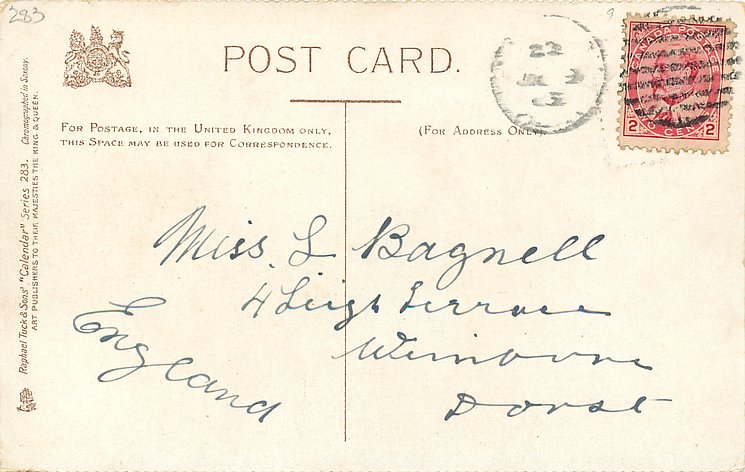 283
POST CARD.
FOR POSTAGE, IN THE UNITED KINGDOM ONLY,
THIS SPACE MAY BE USED FOR CORRESPONDENCE.
(FOR ADDRESS ONLY)
22
CANADA POSTAGE
2 CENTS 2
Raphael Tuck & Sons' "Calendar" Series 283. Chromographed in Saxony.
ART PUBLISHERS TO THEIR MAJESTIES THE KING & QUEEN.
Miss. L Bagnell
4 Leigh Terrace
Wimborne
Dorset
England